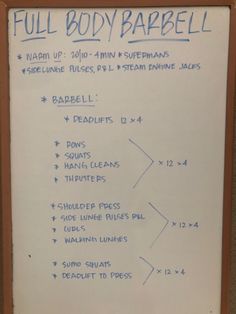 FULL BODY BARBELL
* WARM UP: 20/10 - 4 MIN * SUPERMANS
* SIDE LUNGE PULSES, R&L * STEAM ENGINE JACKS
* BARBELL:
* DEADLIFTS 12 x 4
* ROWS
* SQUATS
* HANG CLEANS
* THRUSTERS
x 12 x 4
* SHOULDER PRESS
* SIDE LUNGE PULSES R&L
* CURLS
* WALKING LUNGES
x 12 x 4
* SUMO SQUATS
* DEADLIFT TO PRESS
x 12 x 4